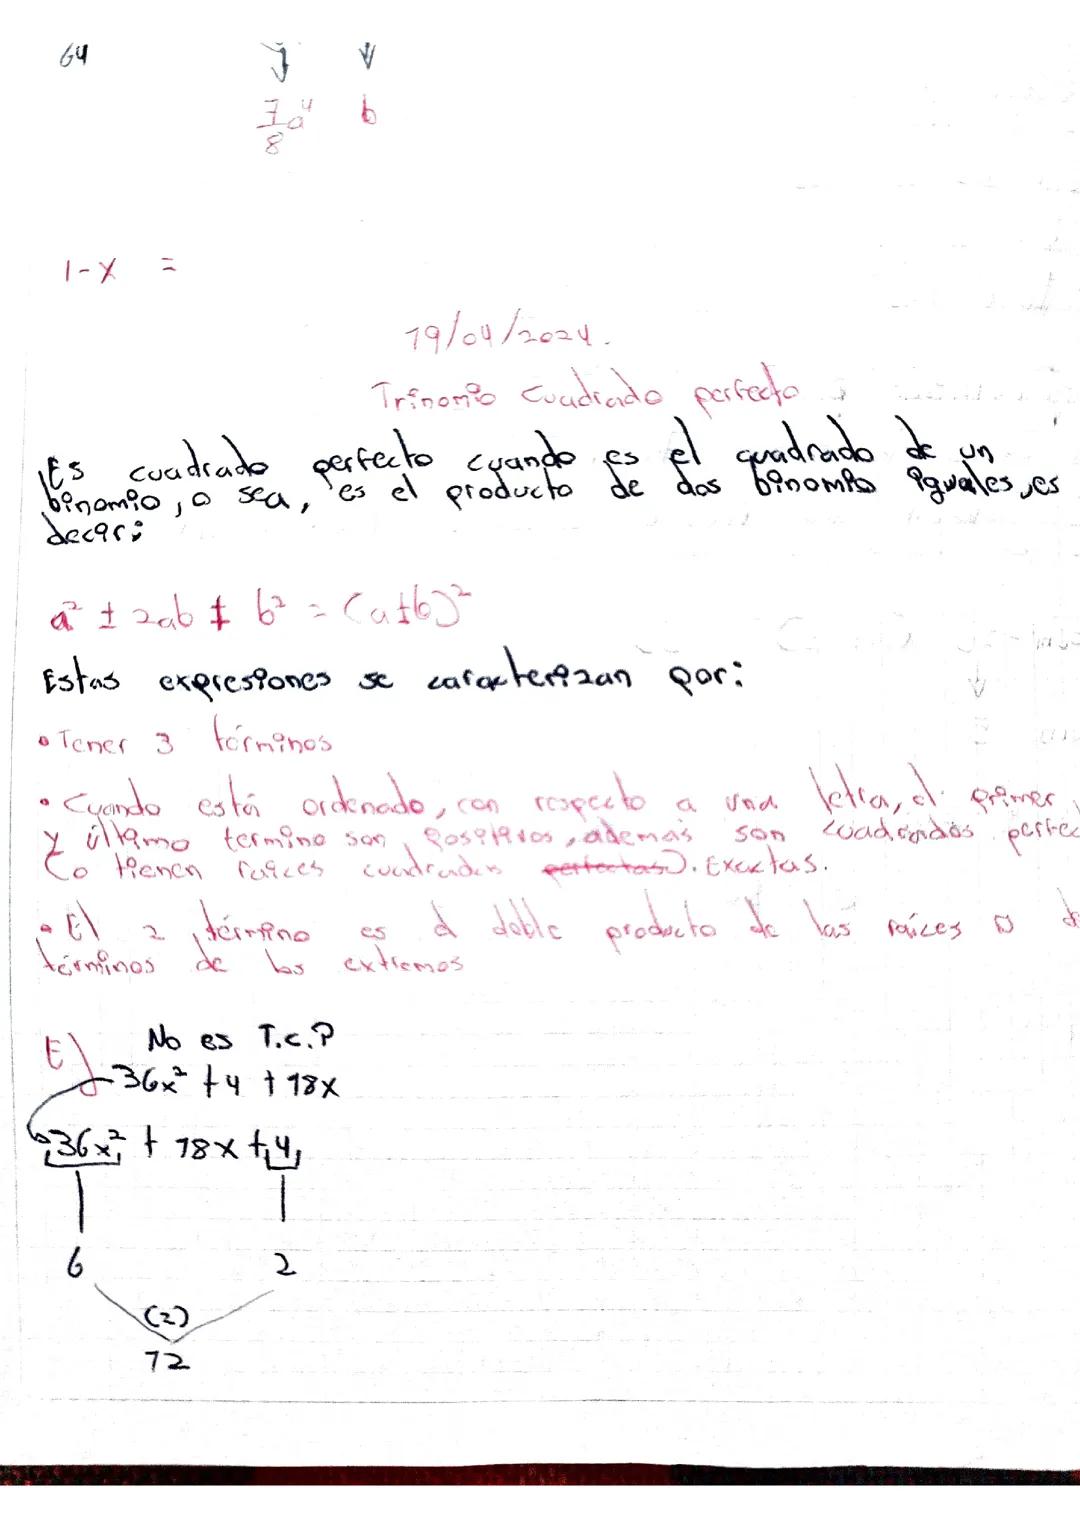 64
7/8 a⁴ b
1-x =
19/04/2024.
Trinomio Cuadrado perfecto
Es cuadrado perfecto cuando es el cuadrado de un
binomio, o sea, es el producto de dos binomios iguales, es
decir:
a² ± 2ab ± b² = (a±b)²
Estas expresiones se caracterizan por:
• Tener 3 términos
• Cuando está ordenado, con respecto a una letra, el primer
y último termino son positivos, además son cuadrados perfec
(o tienen raíces cuadradas perfectas). Exactas.
• El 2 término es el doble producto de las raíces
términos de los extremos
No es T.C.P
E) 36x² + 4 + 18x
36x² + 18x + 4
6 2
(2)
72